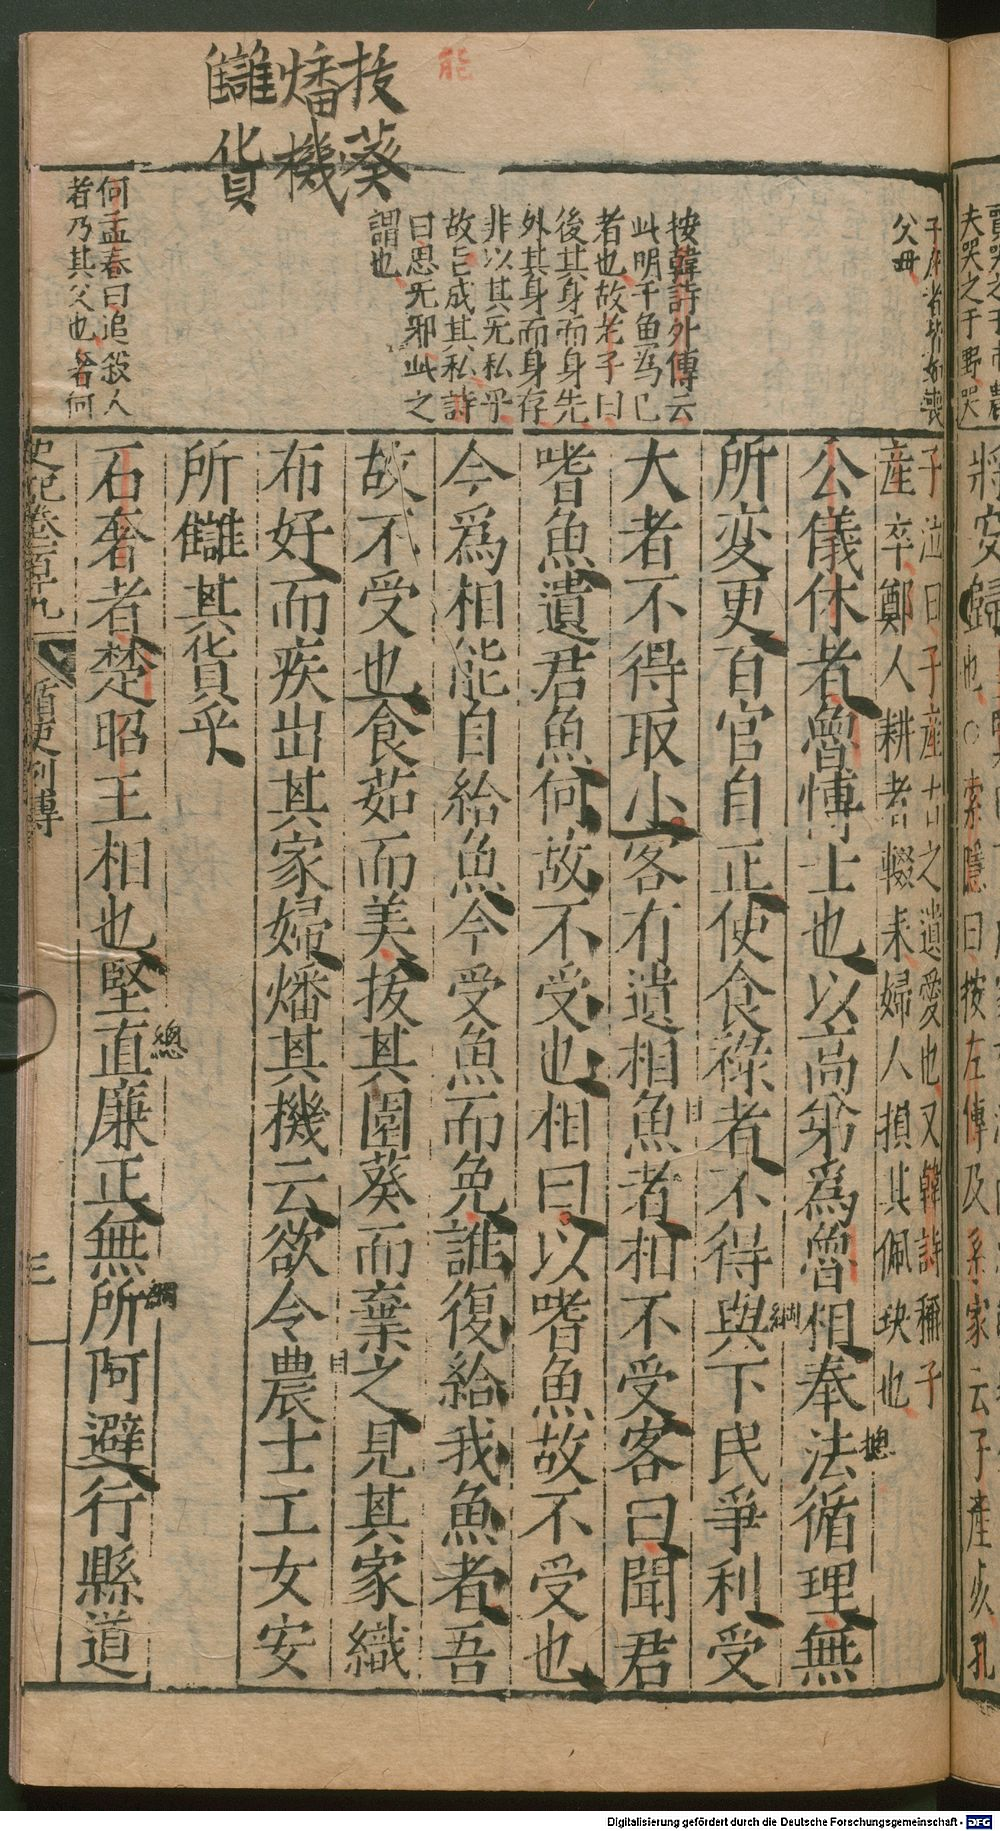 能
拔葵
燔機
讎貨
父母
按韓詩外傳云
此明于魚為己
者也故老子曰
後其身而身先
外其身而身存
非以其无私乎
故巨成其私詩
曰思无邪此之
謂也
何孟春曰追殺人
者乃其父也奢何
夫哭之于野哭
將安歸也○索隱曰按左傳及系家云子產死孔
子泣曰子產古之遺愛也又韓詩稱子
產卒鄭人耕者輟耒婦人損其佩玦也
公儀休者魯愽士也以高第爲魯相奉法循理無
所変更百官自正使食祿者不得與下民爭利受
大者不得取小客有遺相魚者相不受客曰聞君
嗜魚遺君魚何故不受也相曰以嗜魚故不受也
今爲相能自給魚今受魚而免誰復給我魚者吾
故不受也食茹而美拔其園葵而棄之見其家織
布好而疾出其家婦燔其機云欲令農士工女安
所讎其貨乎
石奢者楚昭王相也堅直廉正無所阿避行縣道
總
綱
目
目
總
綱
史記卷一百十九
循吏列傳
三
Digitalisierung gefördert durch die Deutsche Forschungsgemeinschaft - DFG